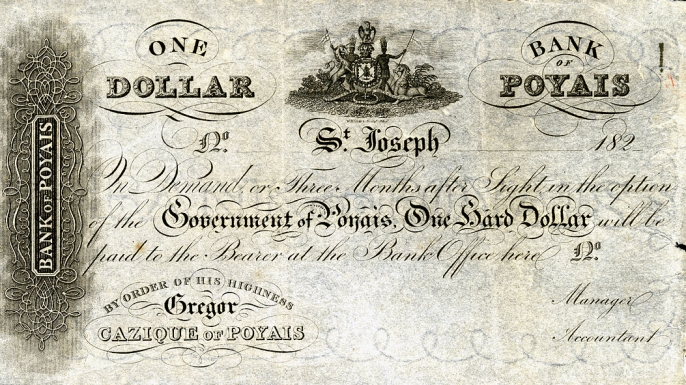 ONE
DOLLAR
BANK
OF
POYAIS
BANK OF POYAIS
No.
St. Joseph
182
On Demand, or Three Months after Sight in the option
of the Government of Poyais, One Hard Dollar will be
paid to the Bearer at the Bank Office here No.
BY ORDER OF HIS HIGHNESS
Gregor
CAZIQUE OF POYAIS
Manager
Accountant